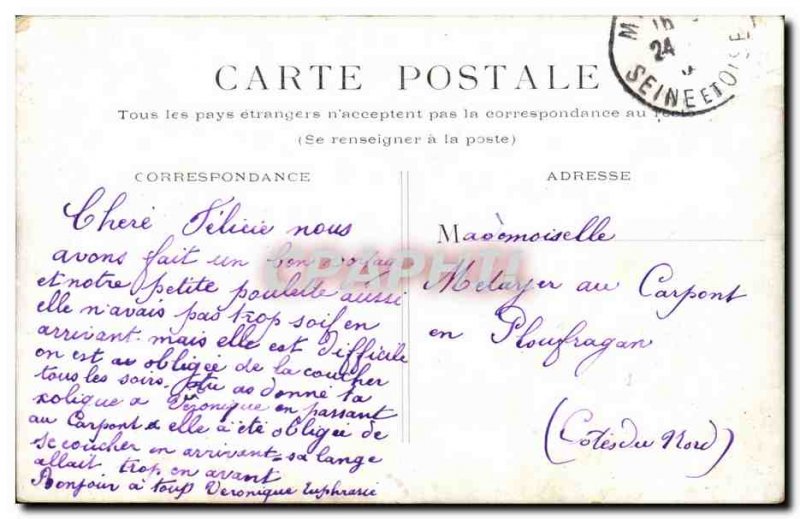 CARTE POSTALE
Tous les pays étrangers n'acceptent pas la correspondance au recto
(Se renseigner à la poste)
CORRESPONDANCE
ADRESSE
SEINE ET OISE
24
Cheré Félicie nous
avons fait un bon voyage
et notre petite poulette aussi
elle n'avais pas trop soif en
arrivant mais elle est difficile
on est obligée de la coucher
tous les soirs. tu as donné la
kolique a Véronique en passant
au Carpont elle a été obligée de
se coucher en arrivant = sa lange
allait trop en avant
Bonjour a tous Veronique Euphrasie
Mademoiselle
Metayer au Carpont
en Ploufragan
(Côtes du Nord)